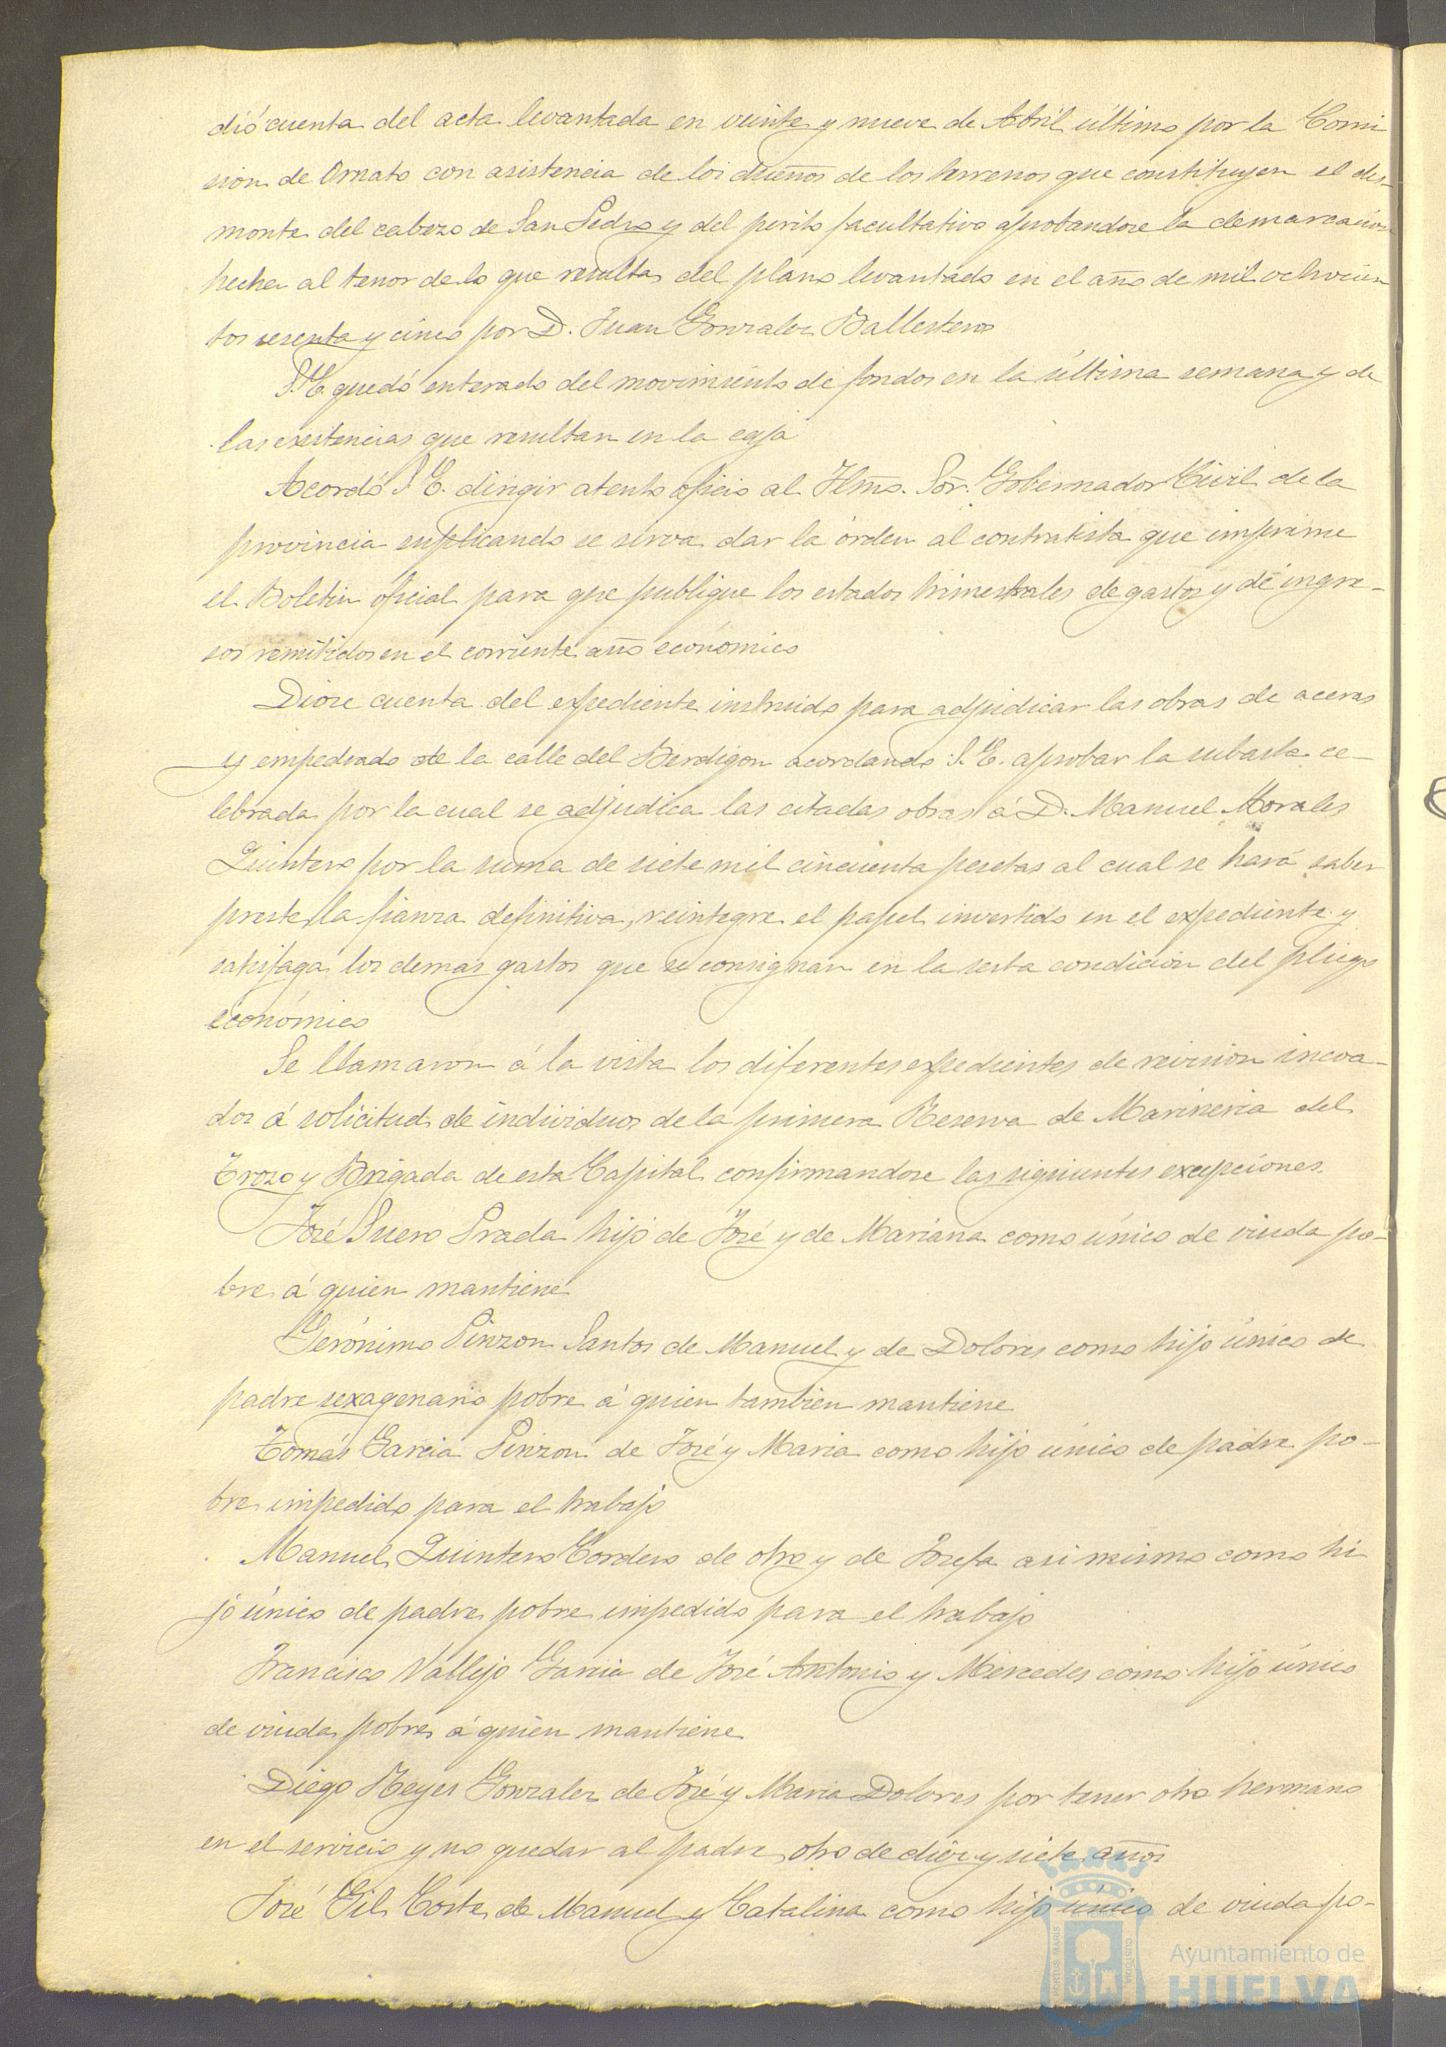 dió cuenta del acta levantada en veinte y nueve de Abril último por la Comi
sion de Ornato con asistencia de los dueños de los terrenos que constituyen el des-
monte del cabezo de San Pedro y del perito facultativo aprobandose la demarcacion
hecha al tenor de lo que resulta del plano levantado en el año de mil ochocien
tos sesenta y cinco por D. Juan Gonzalez Ballesteros
S. E. quedó enterado del movimiento de fondos en la última semana y de
las existencias que resultan en la caja
Acordó S. E. dirigir atento oficio al Ilmo. Sor. Gobernador Civil de la
provincia suplicando se sirva dar la órden al contratista que imprime
el Boletin oficial para que publique los estados trimestrales de gastos y de ingre-
sos remitidos en el corriente año económico
Diose cuenta del expediente instruido para adjudicar las obras de aceras
y empedrado de la calle del Berdigon acordando S. E. aprobar la subasta ce-
lebrada por la cual se adjudica las citadas obras á D. Manuel Morales
Quintero por la suma de siete mil cincuenta pesetas al cual se hará saber
preste la fianza definitiva, reintegre el papel invertido en el expediente y
satisfaga los demas gastos que se consignan en la sesta condicion del pliego
económico
Se llamaron á la vista los diferentes expedientes de revision incoa-
dos á solicitud de individuos de la primera Reserva de Marineria del
Trozo y Brigada de esta Capital confirmandose las siguientes excepciones.
José Suero Prada hijo de José y de Mariana como único de viuda po-
bre á quien mantiene
Gerónimo Pinzon Santos de Manuel y de Dolores como hijo único de
padre sexagenario pobre á quien tambien mantiene
Tomás Garcia Pinzon de José y Maria como hijo único de padre po-
bre impedido para el trabajo
Manuel Quintero Cordero de otro y de Josefa asi mismo como hi
jo único de padre pobre impedido para el trabajo
Francisco Vallejo Garcia de José Antonio y Mercedes como hijo único
de viuda pobre á quien mantiene
Diego Reyes Gonzalez de José y Maria Dolores por tener otro hermano
en el servicio y no quedar al padre otro de diez y siete años
José Gil Corte de Manuel y Catalina como hijo único de viuda po-
PORTUS MARIS
CUSTODIA
Ayuntamiento de
HUELVA